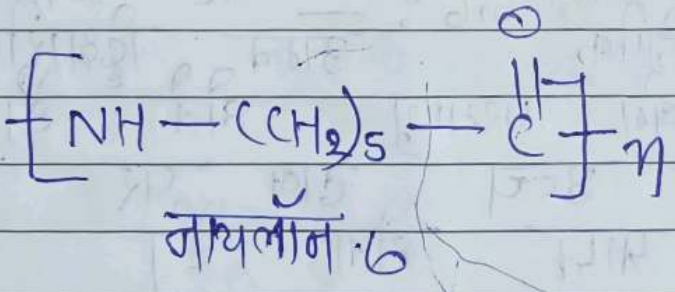 O
||
[ NH — (CH₂)₅ — C ]n
नायलॉन-6